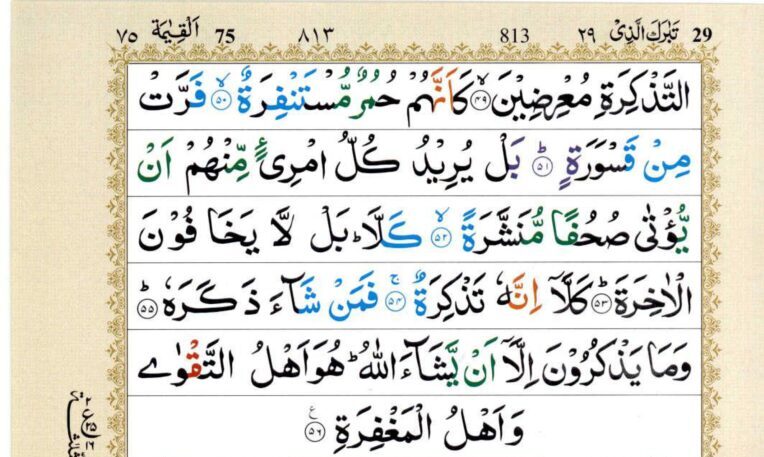 29 تَبٰرَكَ الَّذِىْ ٢٩ 813 ٨١٣ 75 اَلْقِيٰمَة ٧٥
التَّذْكِرَةِ مُعْرِضِيْنَ ۙ‏﴿۴۹﴾ كَاَنَّهُمْ حُمُرٌ مُّسْتَنْفِرَةٌ ۙ‏﴿۵۰﴾ فَرَّتْ
مِنْ قَسْوَرَةٍ ؕ‏﴿۵۱﴾ بَلْ يُرِيْدُ كُلُّ امْرِیٴٍ مِّنْهُمْ اَنْ
يُّؤْتٰى صُحُفًا مُّنَشَّرَةً ۙ‏﴿۵۲﴾ كَلَّا ؕ بَلْ لَّا يَخَافُوْنَ
الْاٰخِرَةَ ؕ‏﴿۵۳﴾ كَلَّاۤ اِنَّهٗ تَذْكِرَةٌ ۚ‏﴿۵۴﴾ فَمَنْ شَآءَ ذَكَرَهٗ ؕ‏﴿۵۵﴾
وَمَا يَذْكُرُوْنَ اِلَّاۤ اَنْ يَّشَآءَ اللّٰهُ ؕ هُوَ اَهْلُ التَّقْوٰى
وَاَهْلُ الْمَغْفِرَةِ ‏﴿۵۶﴾ ع
٢
ع
٢٥
١٦